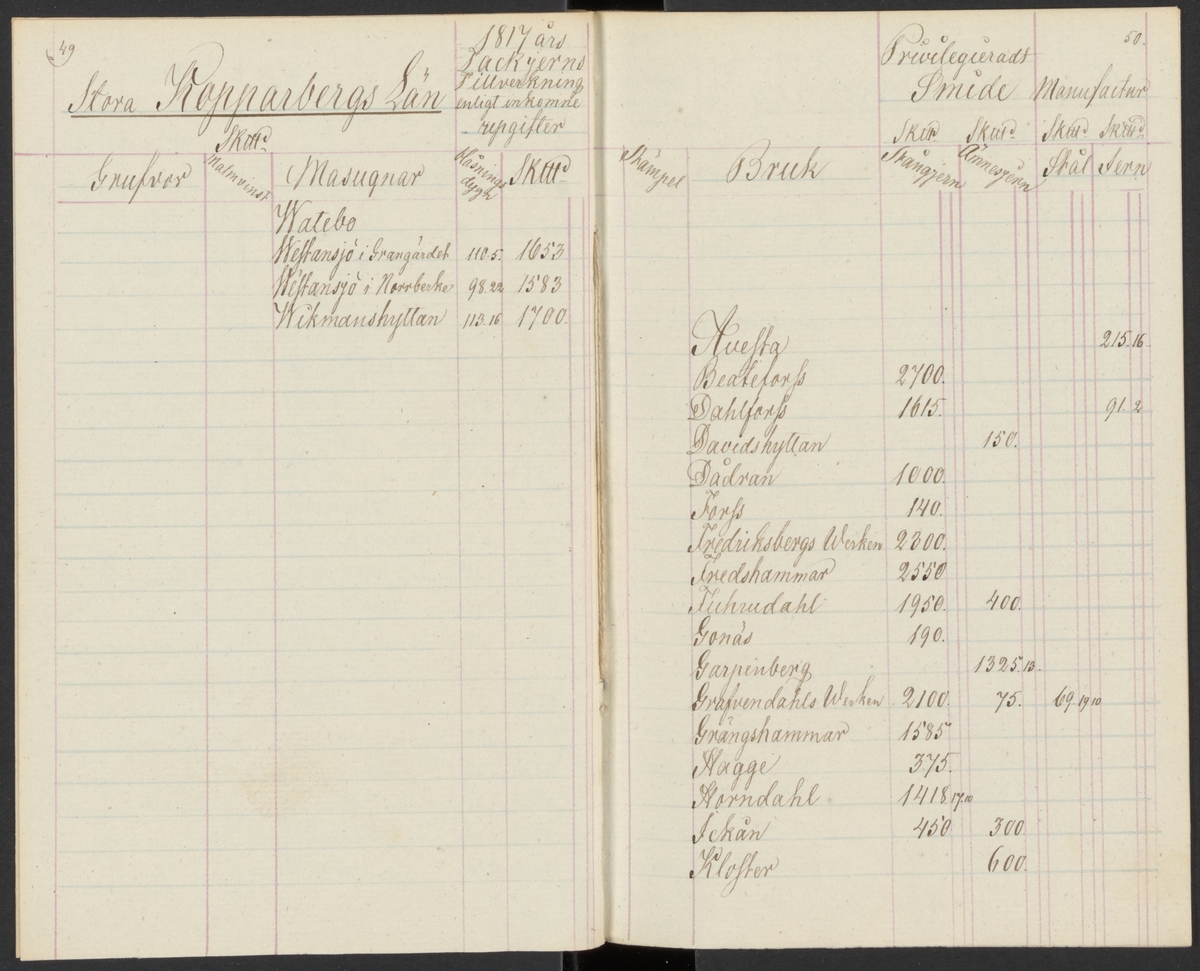 49
Stora Kopparbergs Län
1817 års
Tackjerns
Tillverkning
enligt inkomne
upgifter
Skttd
Grufvor Malmvinst Masugnar Blåsnings dygn Skttd
Watebo
Westansjö i Grangärdet 110.5. 1653
Westansjö i Norrberke 98.22 1583
Wikmanshyttan 113.16 1700.
50.
Privilegieradt
Smide Manufactur
Skttd Skttd Skttd Skttd
Stämpel Bruk Stångjern Ämnesjern Stål Jern
Avesta 215.16
Beateforss 2700.
Dahlforss 1615. 91.2
Davidshyttan 150.
Dådran 1000.
Forss 140.
Fredriksbergs Werken 2300.
Fredshammar 2550
Furudahl 1950. 400.
Gonäs 190.
Garpenberg 1325.13.
Grafvendahls Werken 2100. 75. 69.19.10
Grängshammar 1585
Hagge 375.
Horndahl 1418.17.10
Ickån 450 300.
Kloster 600.